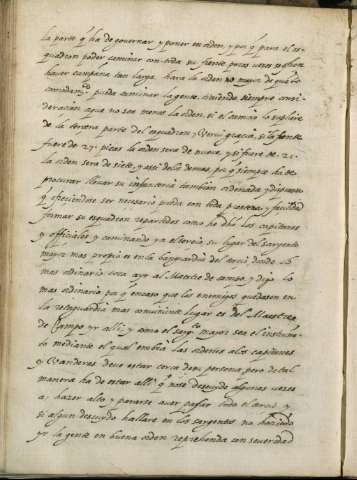 la parte q̃ ha de governar y poner en orden, y por q̃ para el es-
quadron poder caminar con toda su frente pocas vezes se
haver campaña tan larga, hara la orden no mayor de que
comodam.te pueda caminar la gente, teniendo siempre consi-
deración aque no sea menos la orden, si el camino lo supliere
de la tercera parte del esquadron, y Verui gracia, si la frente
fuere de 27. picas la orden sera de nueve, y si fuere de 21.
la orden sera de siete, y assi de los demas, por q̃ siempre ha de
procurar llevar su infanteria tambien ordenada, y dispuesta
q̃ ofreciendose ser necesario pueda con toda presteza, y facilidad
formar su esquadron repartidos como he dho los capitanes
y officiales y caminando ya el tercio, su lugar del sargento
mayor mas proprio es en la banguardia del tercio donde
mas ordinario suea ayr al Maestre de campo, y digo lo
mas ordinario por q̃ encaso que los enemigos quedasen en
la retaguardia mas conviniente lugar es del Maestre
de Campo yr alli, y como el sarg.to mayor sea el instrum.to
mediante el qual embia las ordenes alos capitanes
y Vanderas deve estar cerca desu persona pero de tal
manera ha de estar alli q̃ no se descuyde algunas vezes
a, hazer alto y pararse aver passar todo el tercio y
si algun descuydo hallare en los sargentos no haziendo
yr la gente en buena orden reprehenda con severidad